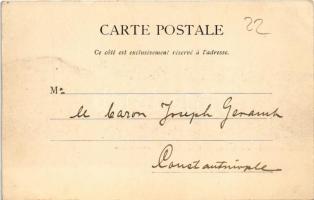 CARTE POSTALE
22
Ce côté est exclusivement réservé à l'adresse.
M
le baron Joseph
Constantinople